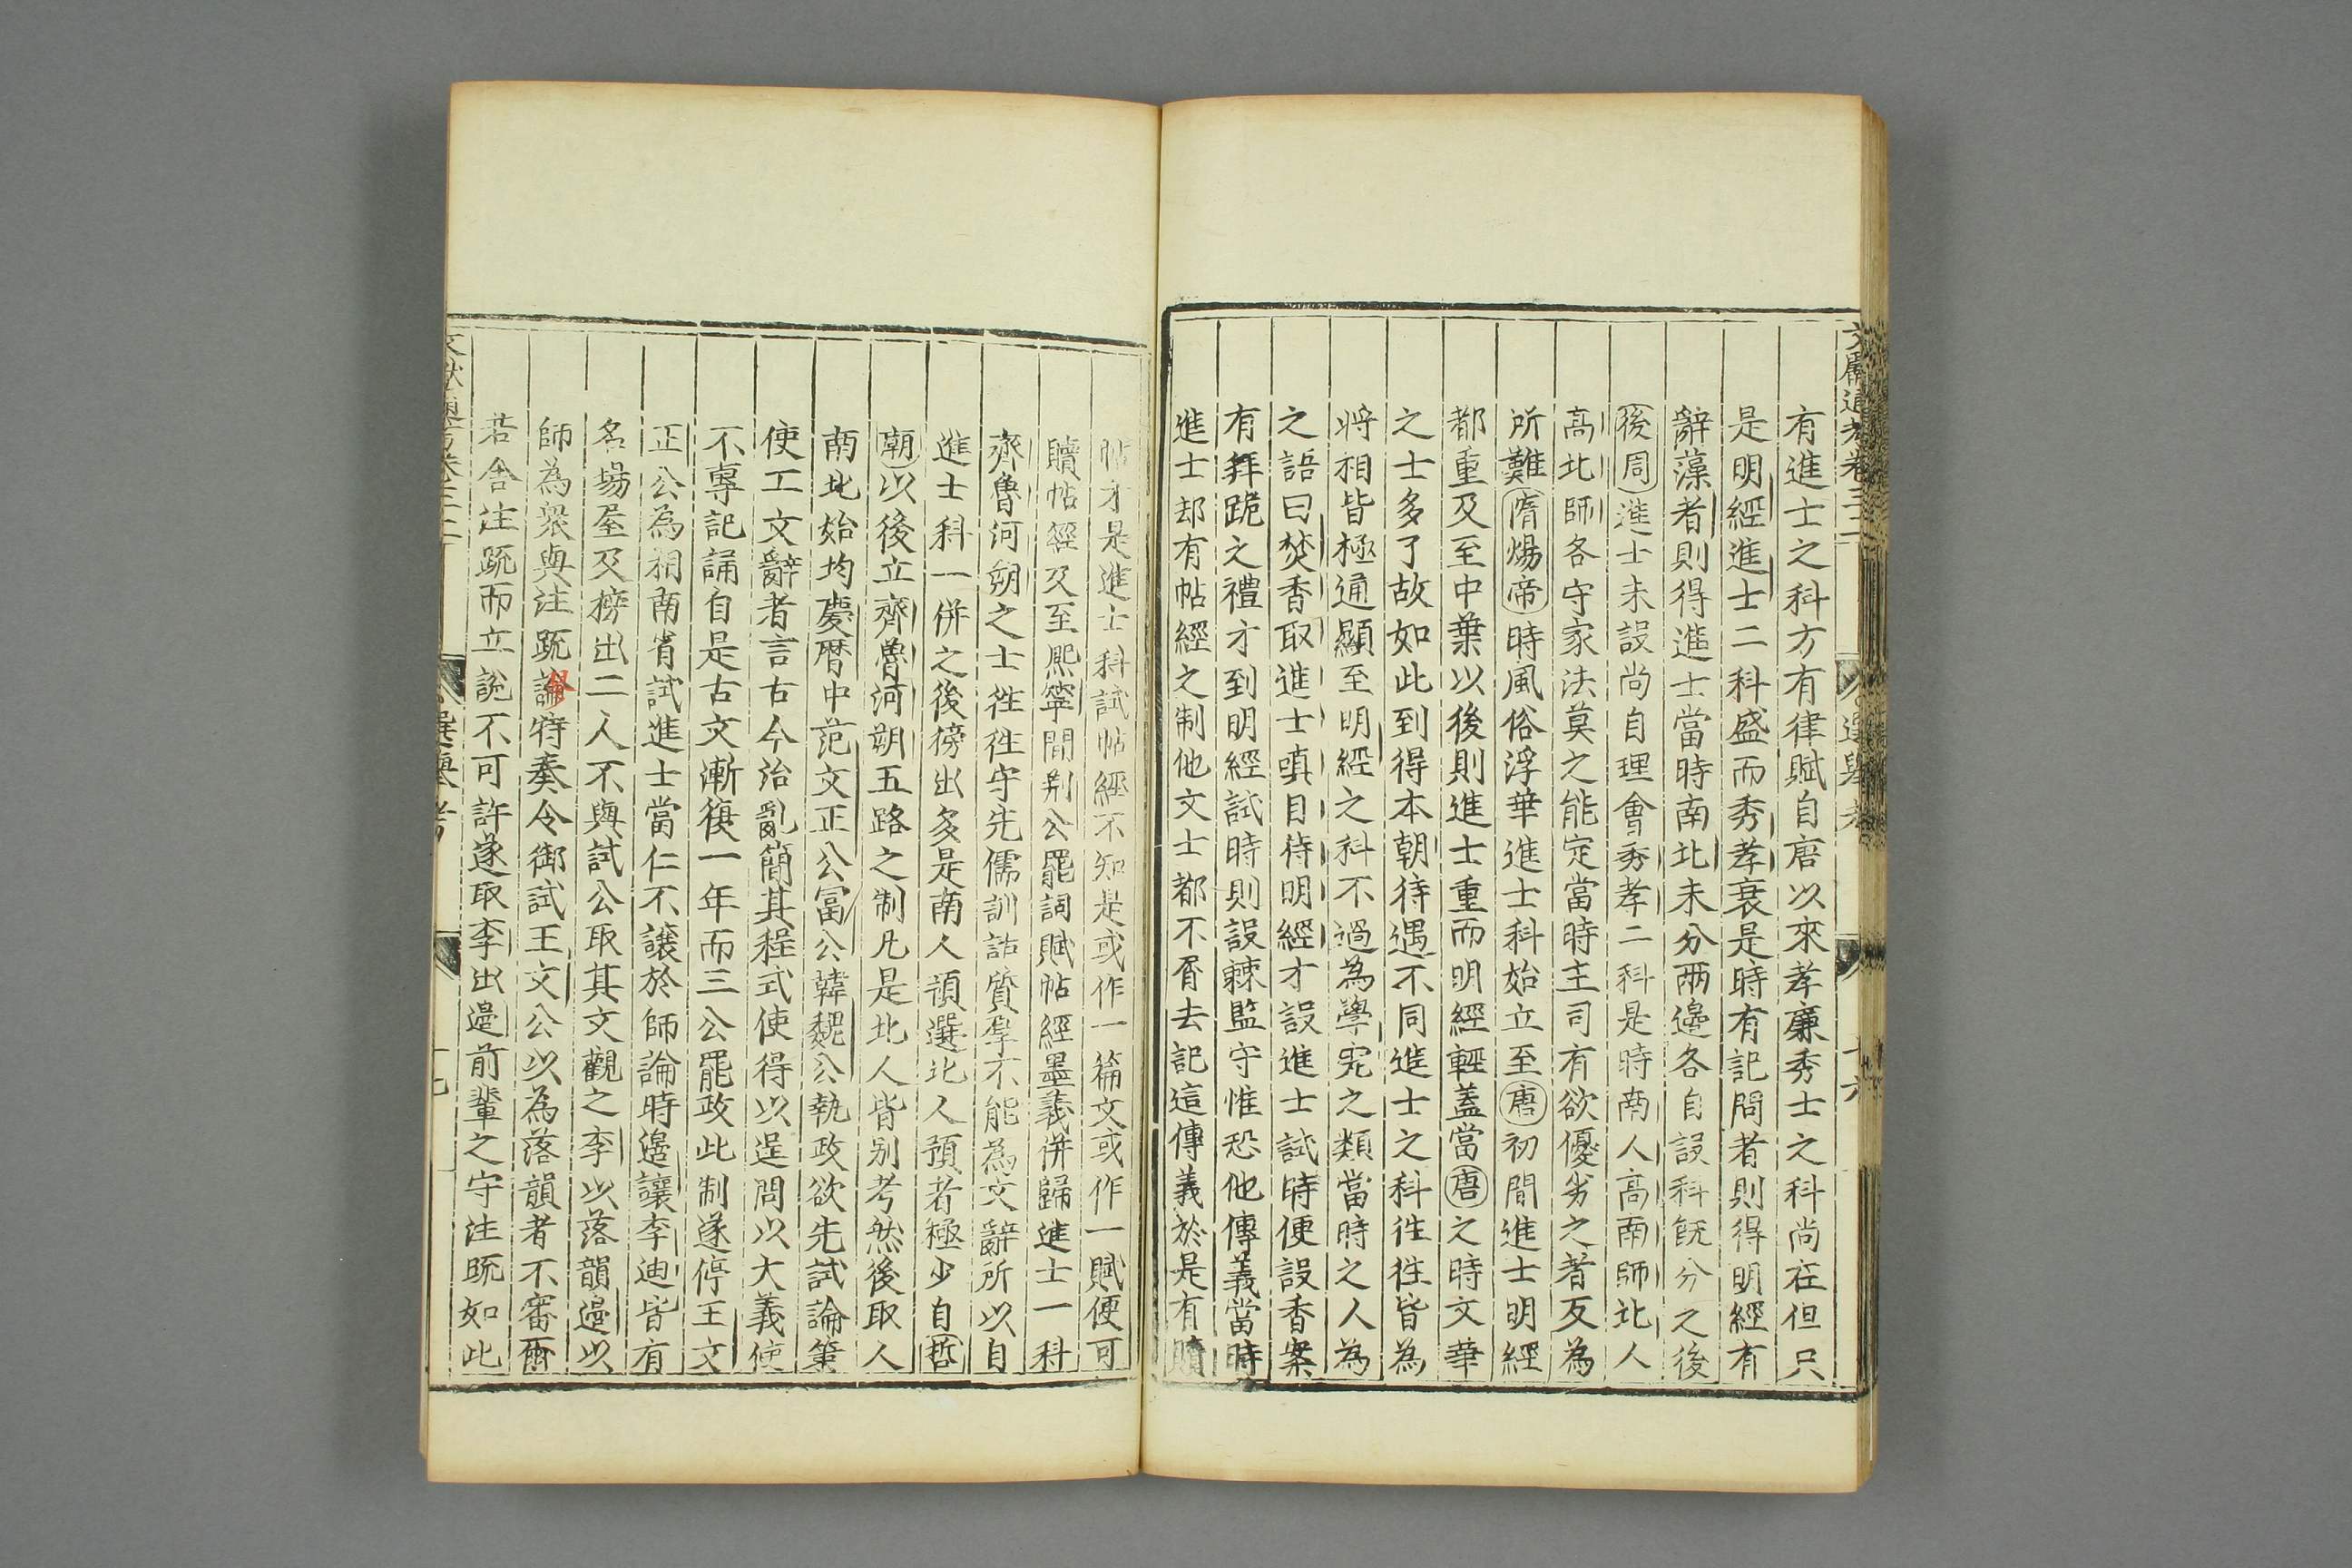 文獻通考卷三十二
選舉考
十六
有進士之科方有律賦自唐以來孝亷秀士之科尚在但只
是明經進士二科盛而秀孝衰是時有記問者則得明經有
辭藻者則得進士當時南北未分兩邊各自設科旣分之後
後周進士未設尚自理會秀孝二科是時南人髙南師北人
髙北師各守家法莫之能定當時主司有欲優劣之者反為
所難隋煬帝時風俗浮華進士科始立至唐初間進士明經
都重及至中葉以後則進士重而明經輕蓋當唐之時文華
之士多了故如此到得本朝待遇不同進士之科徃徃皆為
將相皆極通顯至明經之科不過為學究之類當時之人為
之語曰焚香取進士嗔目待明經才設進士試時便設香案
有拜跪之禮才到明經試時則設棘監守惟恐他傳義當時
進士却有帖經之制他文士都不屑去記這傳義於是有贖
帖才是進士科試帖經不知是或作一篇文或作一賦便可
贖帖經及至熈寧間荆公罷詞賦帖經墨義併歸進士一科
齊魯河朔之士徃徃守先儒訓詁質學不能為文辭所以自
進士科一併之後榜出多是南人預選北人預者極少自哲
朝以後立齊魯河朔五路之制凡是北人皆别考然後取人
南北始均慶曆中范文正公富公韓魏公執政欲先試論策
使工文辭者言古今治亂簡其程式使得以逞問以大義使
不專記誦自是古文漸復一年而三公罷政此制遂停王文
正公為相南省試進士當仁不讓於師論時邊讓李迪皆有
名場屋及榜出二人不與試公取其文觀之李以落韻邊以
師為衆與注疏論特奏令御試王文公以為落韻者不審爾
若舍注疏而立說不可許遂取李出邊前輩之守注疏如此
文獻通考卷三十二
選舉考
十七